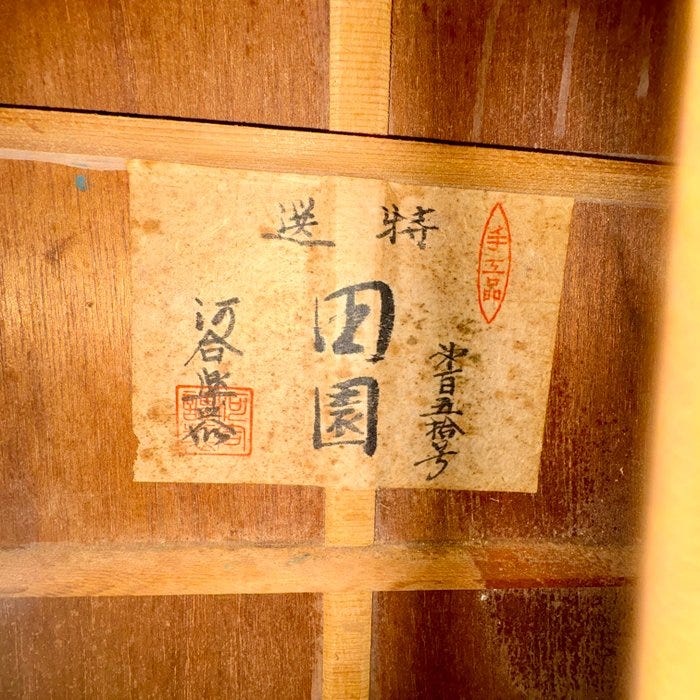 手工品
特選
第百五拾号
田園
河合